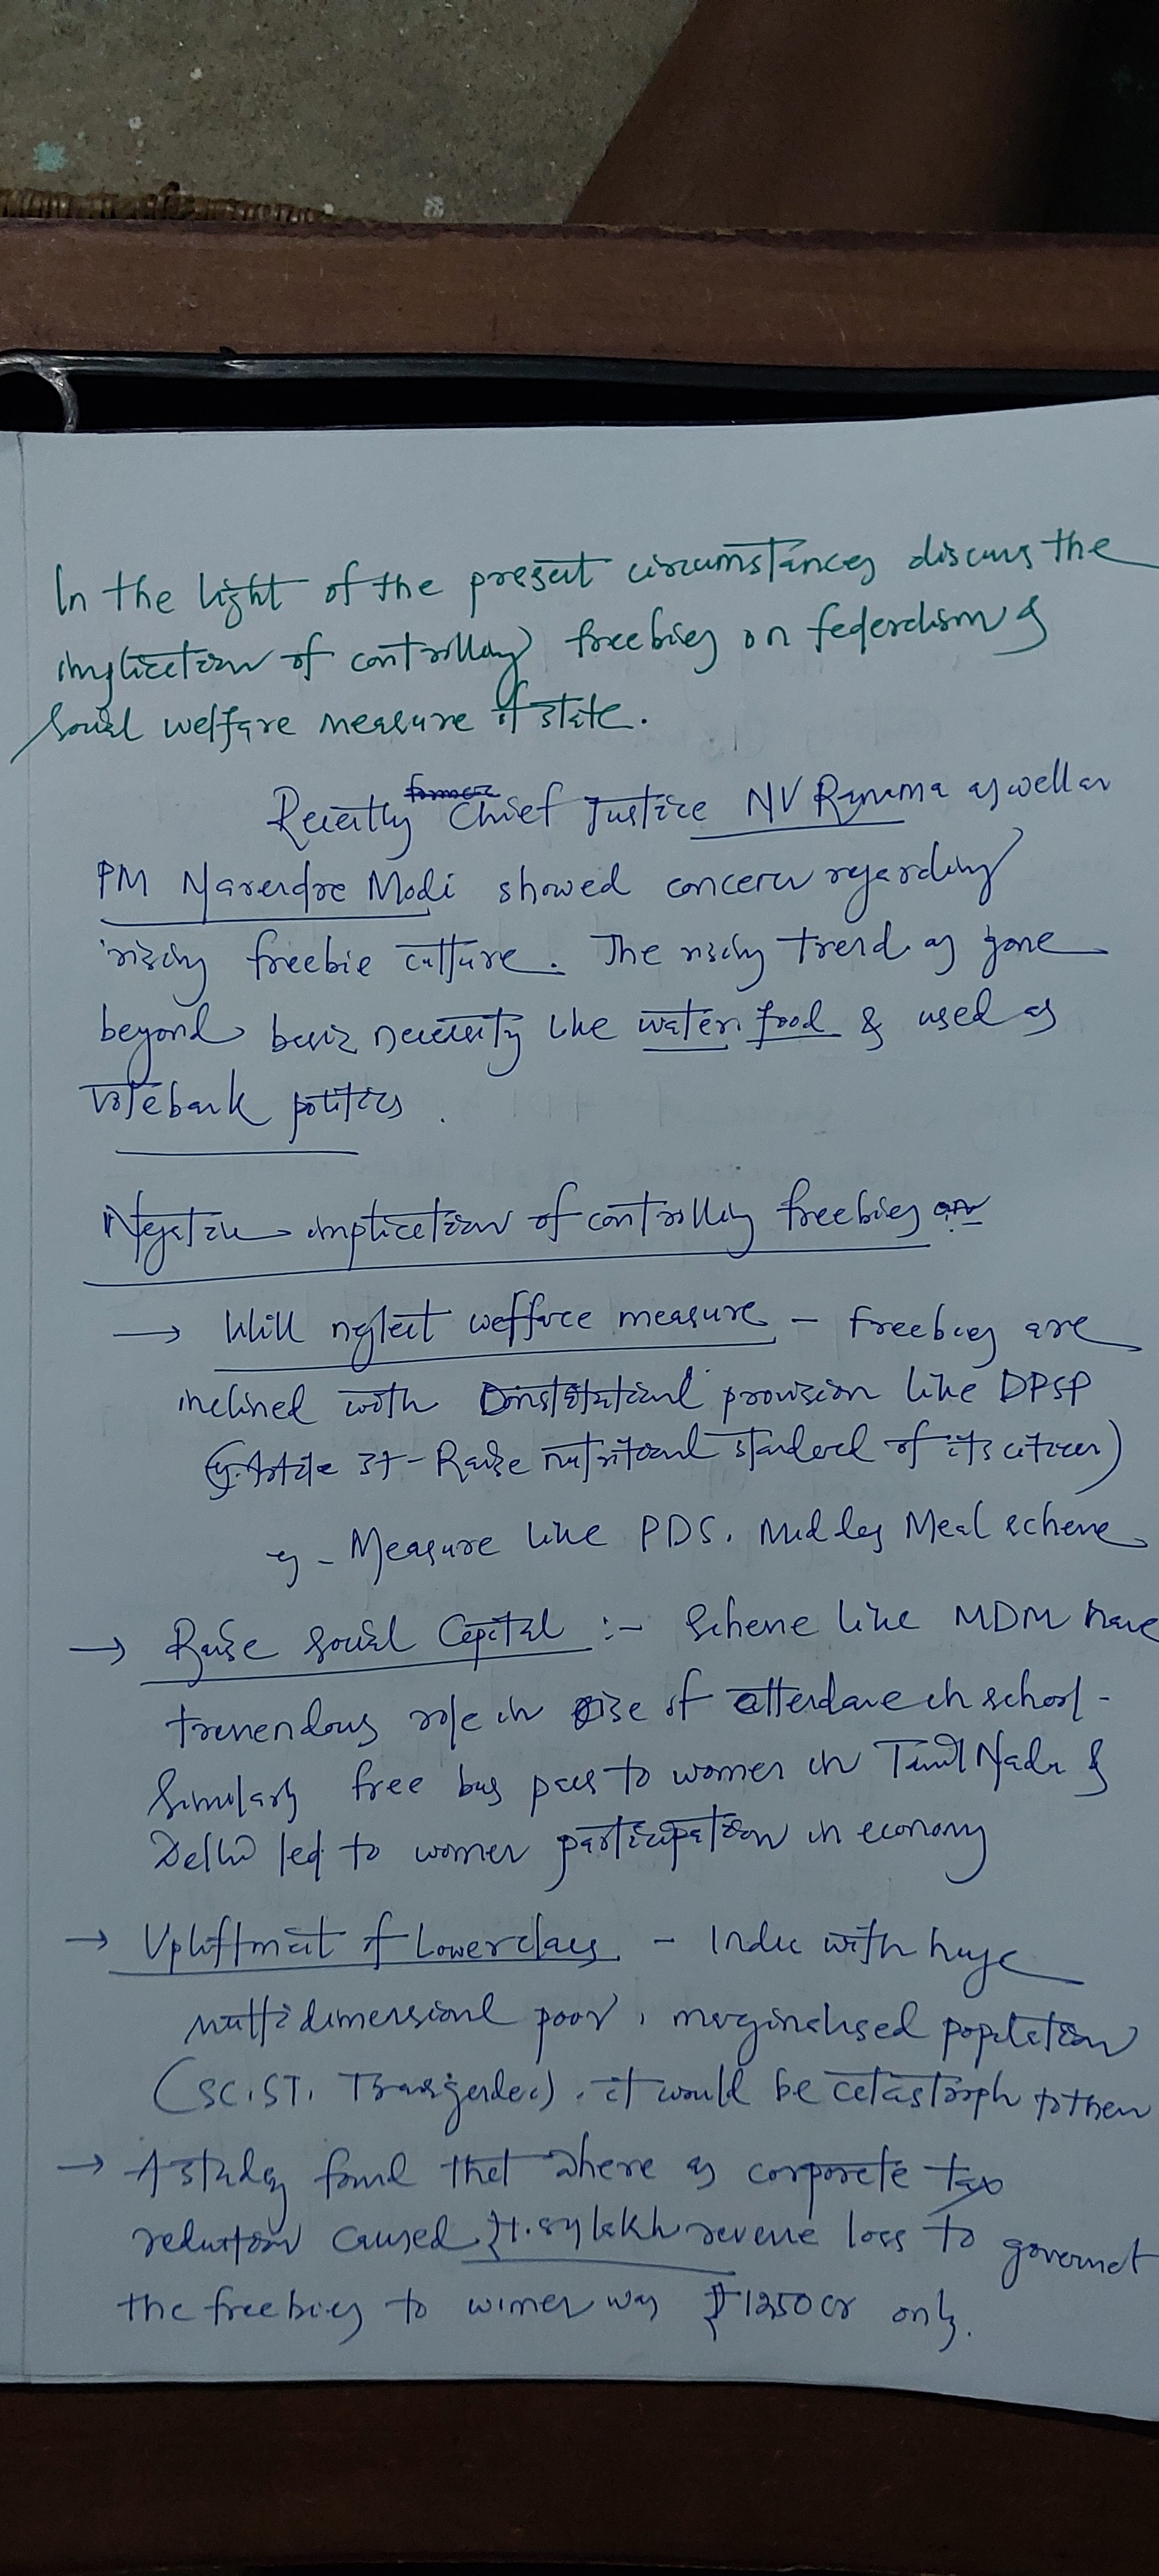 In the light of the present circumstances discuss the
implication of controlling freebies on federalism &
social welfare measure of state.
Recently Chief Justice NV Ramana as well as
PM Narendra Modi showed concern regarding
rising freebie culture. The rising trend as gone
beyond basic necessity like water, food & used as
votebank politics.
Negative implication of controlling freebies
→ Will neglect welfare measure - freebies are
inclined with Constitutional provision like DPSP
(eg. Article 37 - Raise nutritional standard of its citizen)
eg - Measure like PDS, Mid day Meal scheme
→ Raise Social Capital :- Scheme like MDM have
tremendous role in rise of attendance in school.
Similarly free bus pass to women in Tamil Nadu &
Delhi led to women participation in economy
→ Upliftment of Lower class - India with huge
multidimensional poor, marginalised population
(SC, ST, Transgender), it would be catastroph to them
→ A study found that where as corporate tax
reduction caused ₹1.84 lakh revenue loss to governet
the freebies to women was ₹1250 cr only.